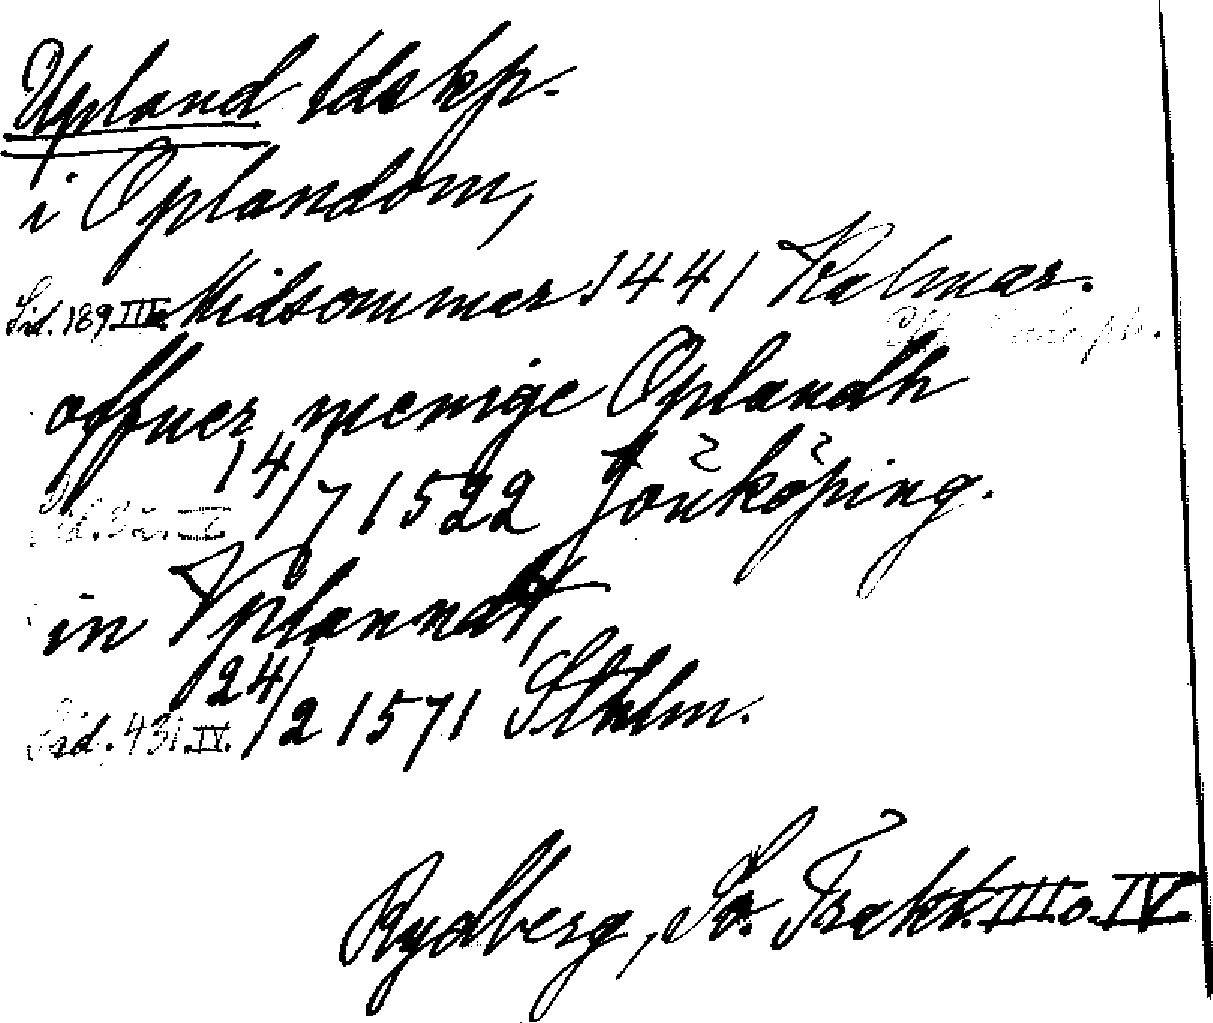 Upland ldskp.
i Oplandom,
Sid. 189. III. Midsommer 1441 Kalmar.
offuer menige Oplandh
14/7 1522 Jönköping.
in Vplanndt,
Sid. 431. IV. 24/2 1571 Sthlm.
Rydberg, Sv. Trakt. III o. IV.